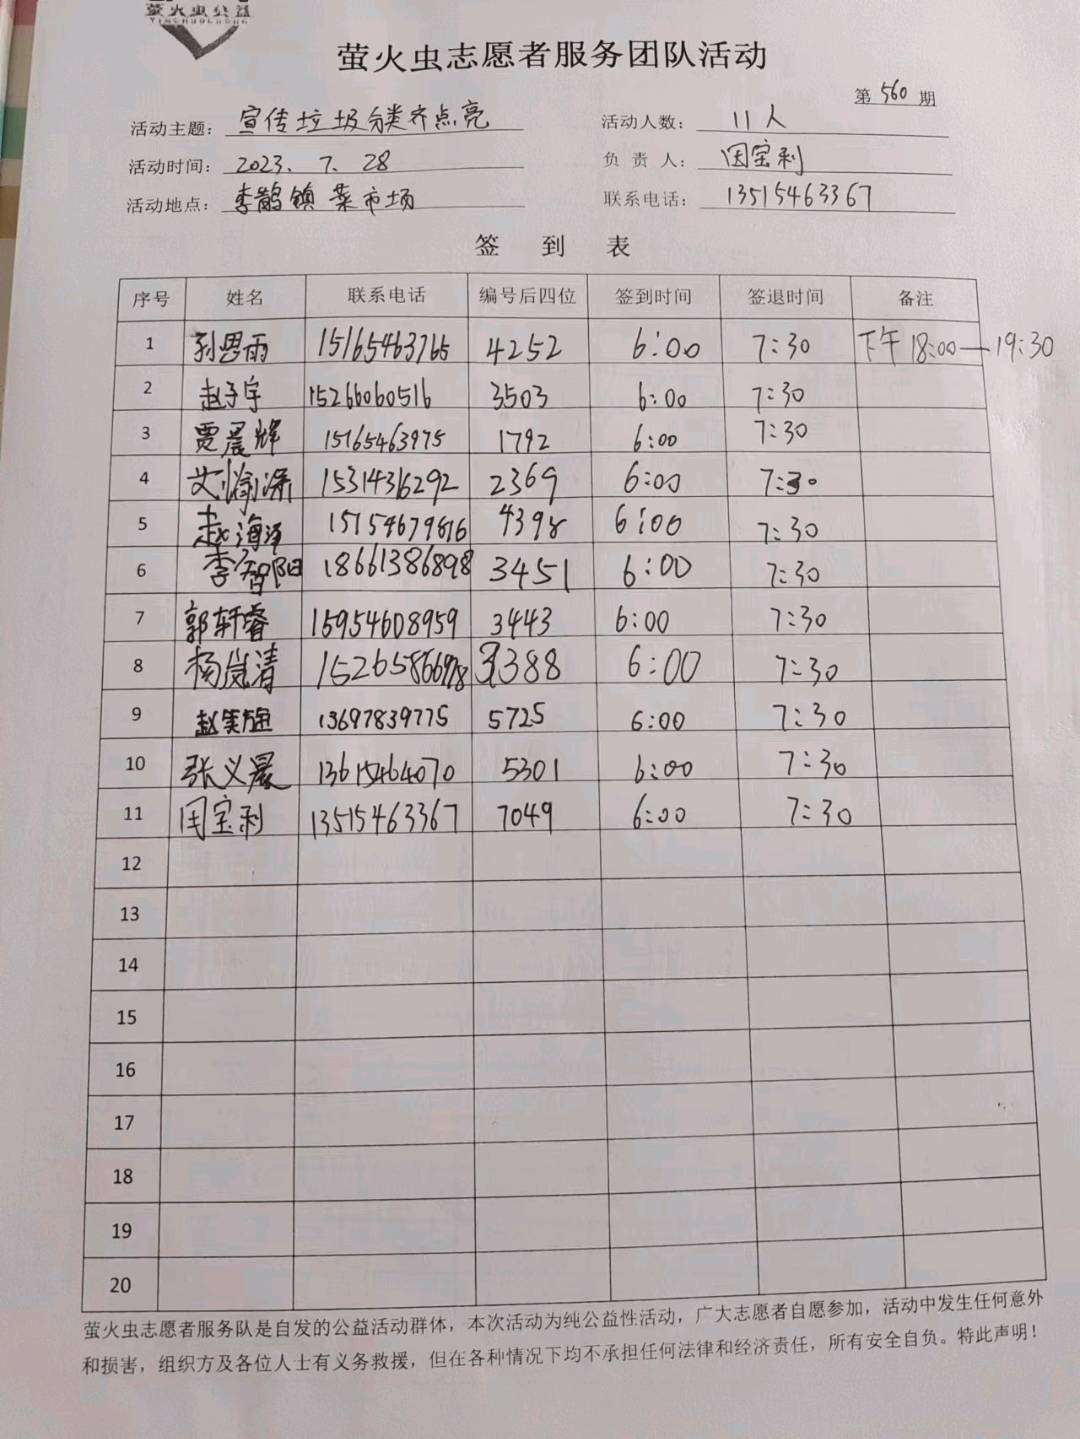 萤火虫公益
YINGHUOCHONG
萤火虫志愿者服务团队活动
第 560 期
活动主题: 宣传垃圾分类齐点亮 活动人数: 11人
活动时间: 2023.7.28 负责人: 闫宝利
活动地点: 李鹊镇菜市场 联系电话: 13515463367
签到表
序号 姓名 联系电话 编号后四位 签到时间 签退时间 备注
1 孙思雨 15165463765 4252 6:00 7:30 下午18:00—19:30
2 赵子宇 15266060516 3503 6:00 7:30
3 贾晨辉 15165463975 1792 6:00 7:30
4 15314316292 2369 6:00 7:30
5 赵海洋 15154679816 4398 6:00 7:30
6 李智阳 18661386898 3451 6:00 7:30
7 郭轩睿 15954608959 3443 6:00 7:30
8 杨岚清 3388 6:00 7:30
9 13697839775 5725 6:00 7:30
10 张义晨 13615464070 5301 6:00 7:30
11 闫宝利 13515463367 7049 6:00 7:30
12
13
14
15
16
17
18
19
20
萤火虫志愿者服务队是自发的公益活动群体，本次活动为纯公益性活动，广大志愿者自愿参加，活动中发生任何意外
和损害，组织方及各位人士有义务救援，但在各种情况下均不承担任何法律和经济责任，所有安全自负。特此声明！